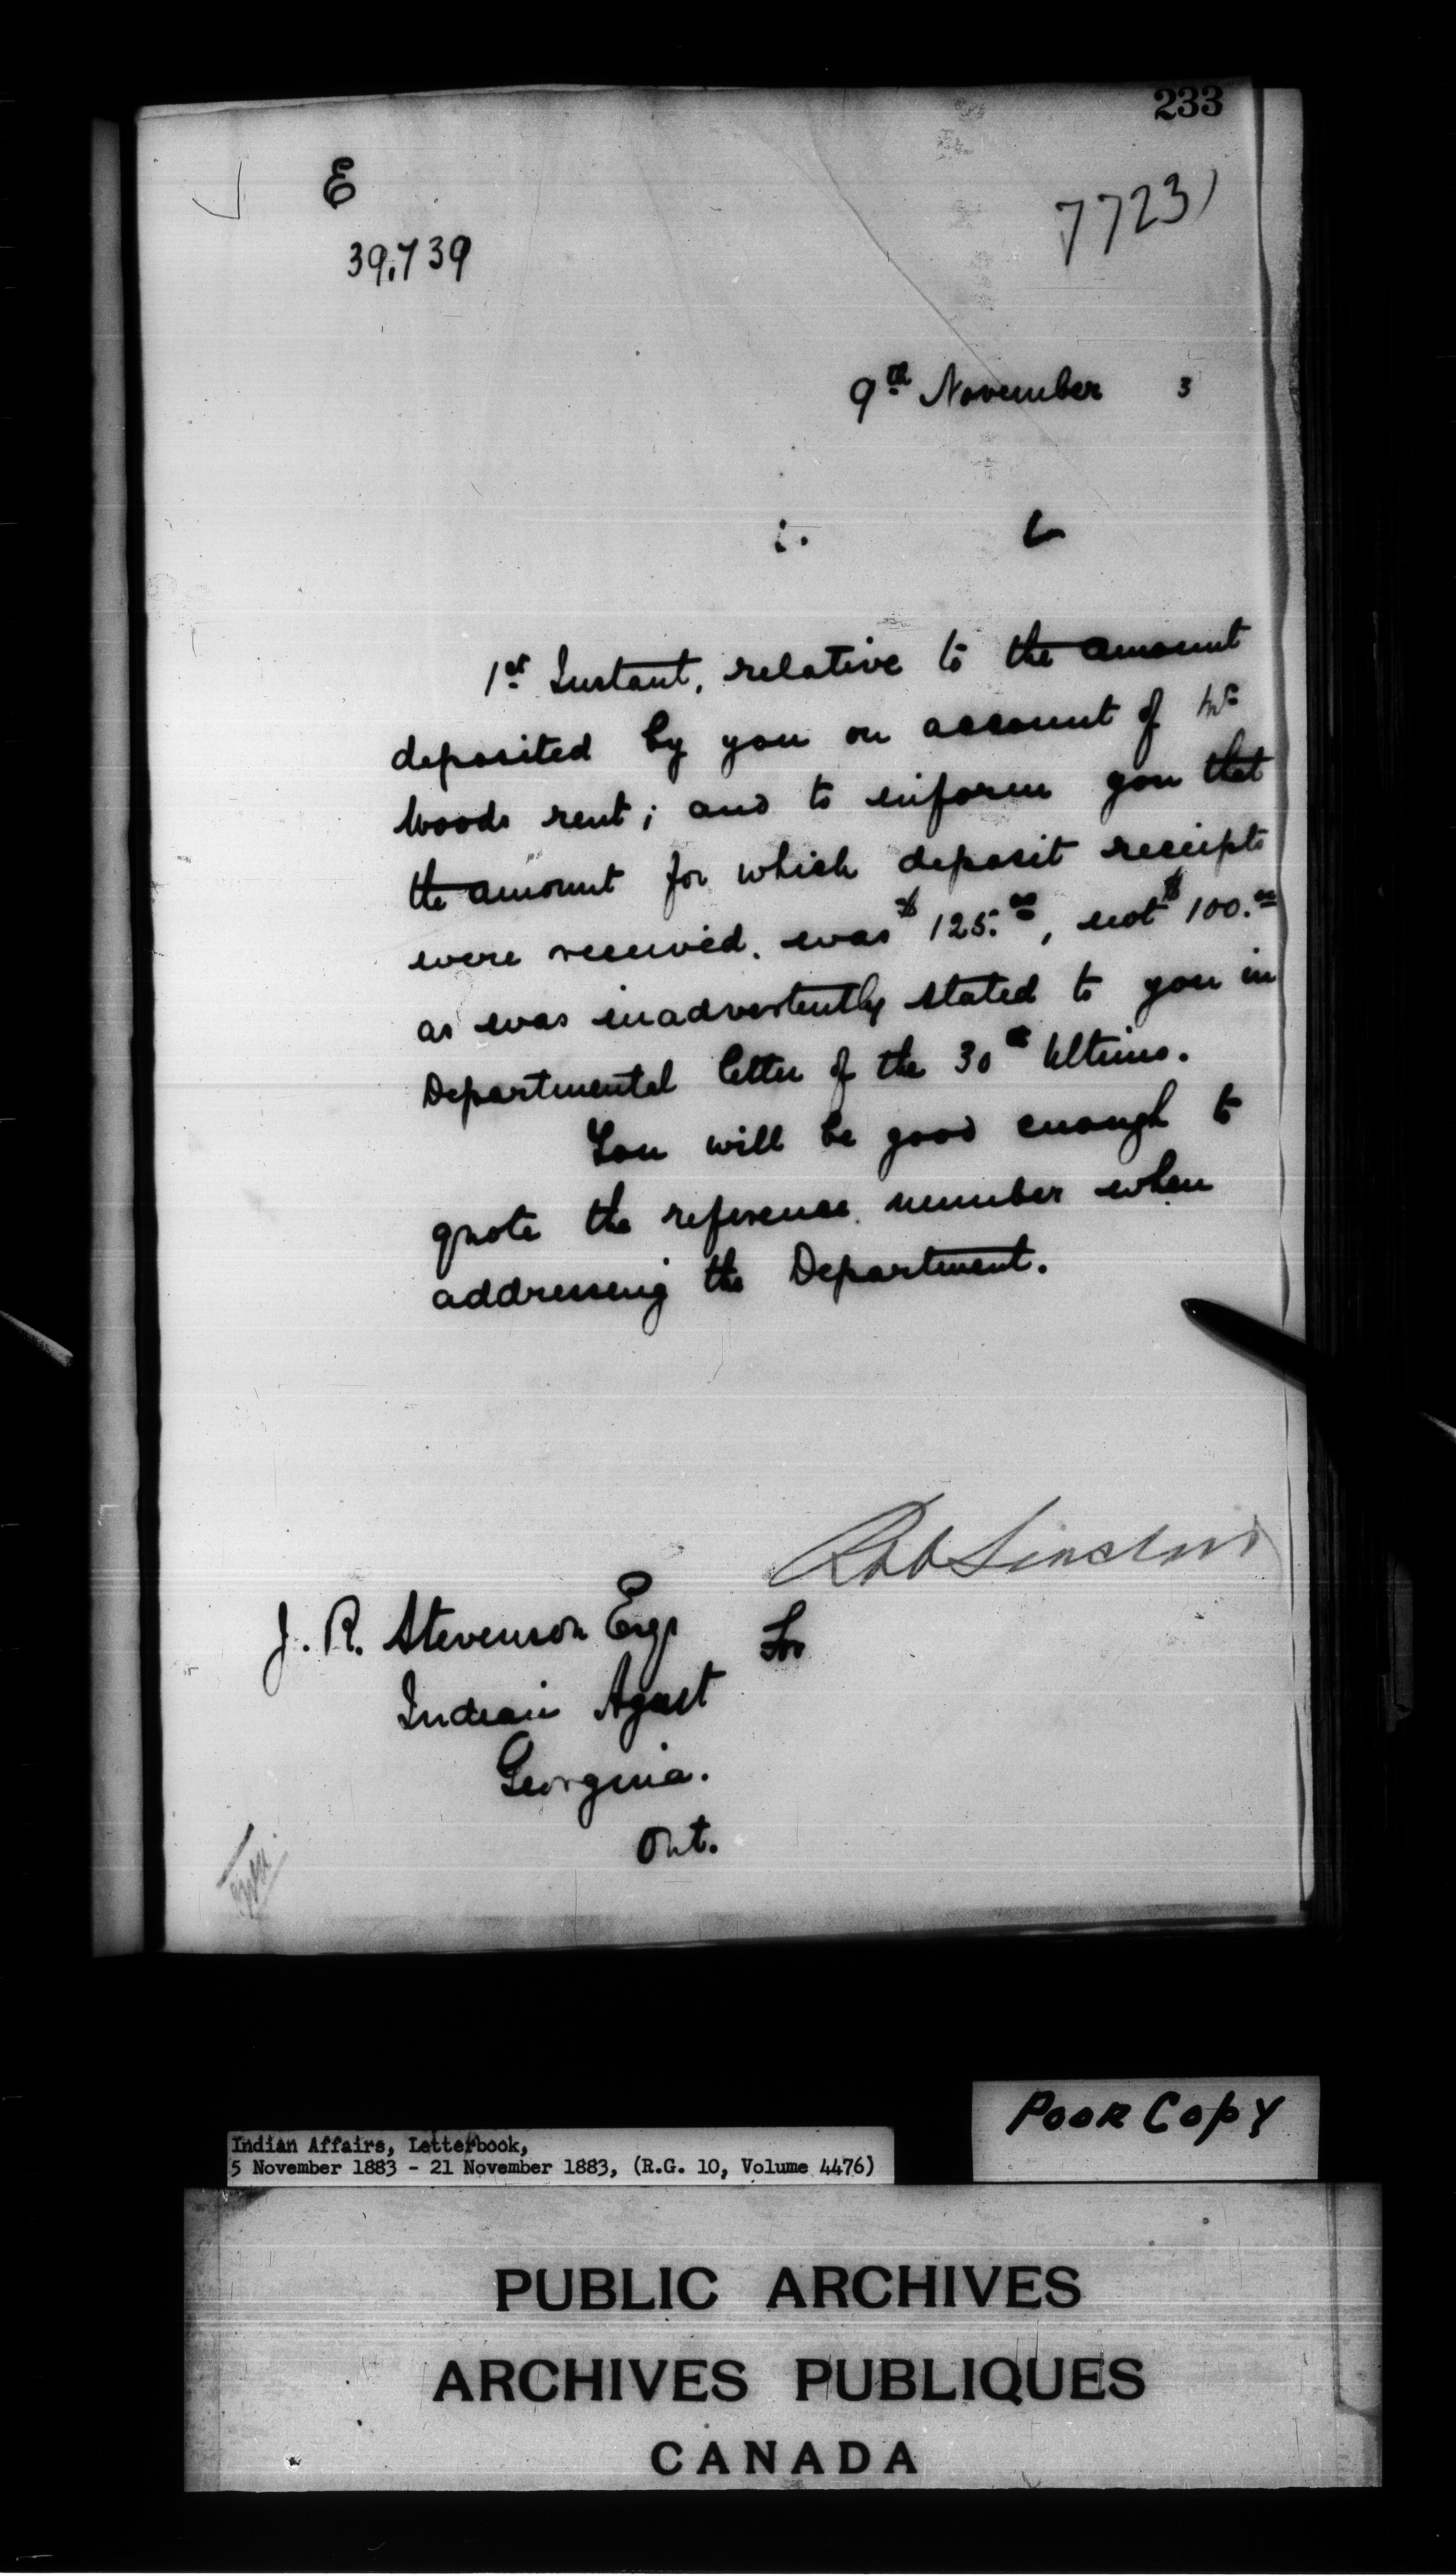 233
E
39,739
7723
9th November 3
1st Instant, relative to the amount
deposited by you on account of Mr
Woods rent; and to inform you that
the amount for which deposit receipts
were received, was $125.00, not $100.00
as was inadvertently stated to you in
Departmental letter of the 30th Ultimo.
You will be good enough to
quote the reference number when
addressing the Department.
Rob Sinclair
J. R. Stevenson Esqr For
Indian Agent
Georgina.
Ont.
POOR COPY
Indian Affairs, Letterbook,
5 November 1883 - 21 November 1883, (R.G. 10, Volume 4476)
PUBLIC ARCHIVES
ARCHIVES PUBLIQUES
CANADA